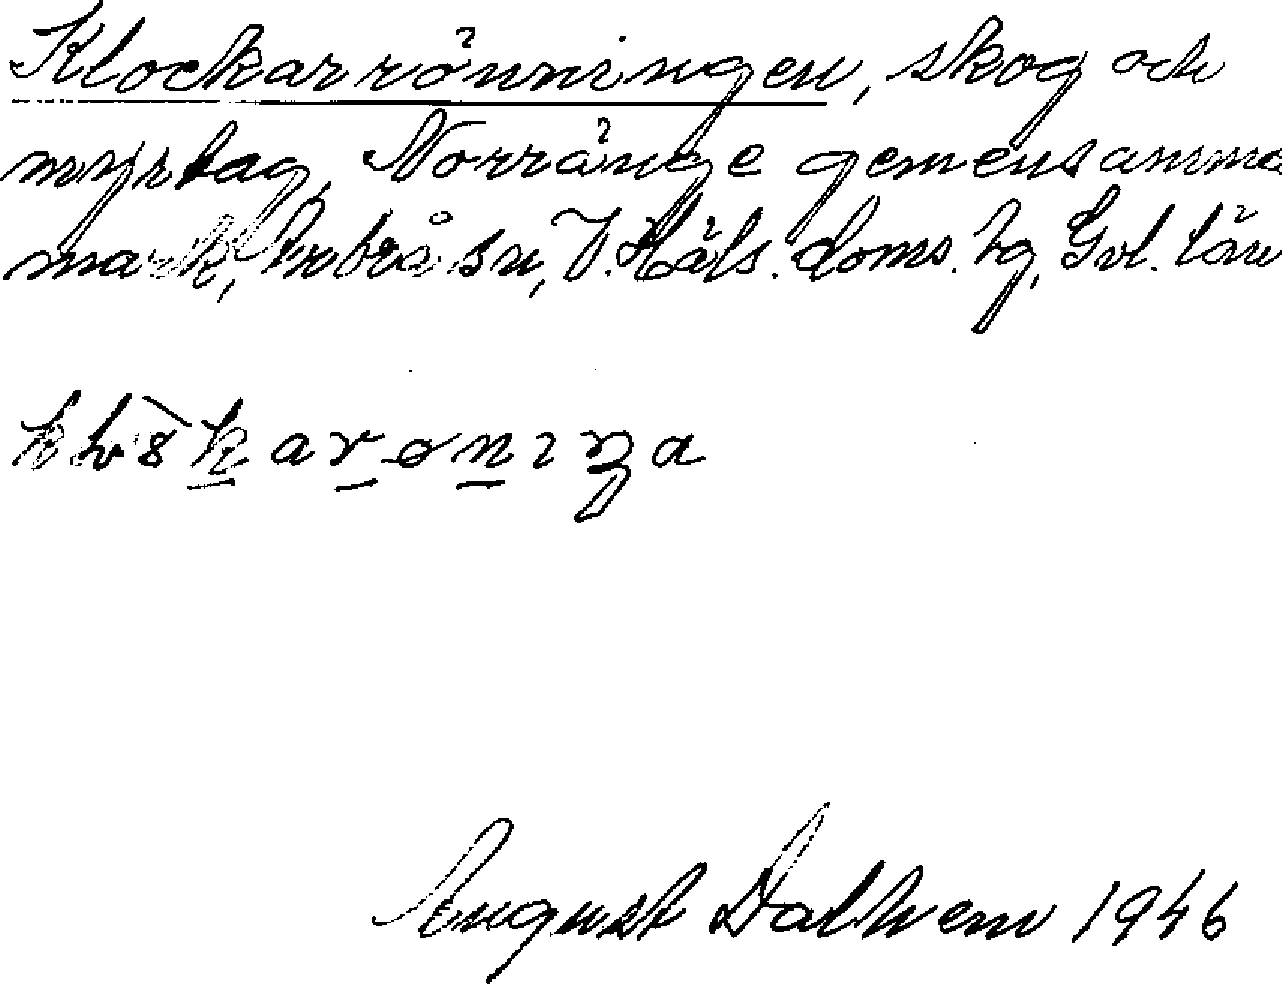 Klockarrönningen, skog och
myrtag, Norränge gemensamma
mark, Arbrå sn, V. Häls. doms. hg, Gvl. län
August Dalhem 1946